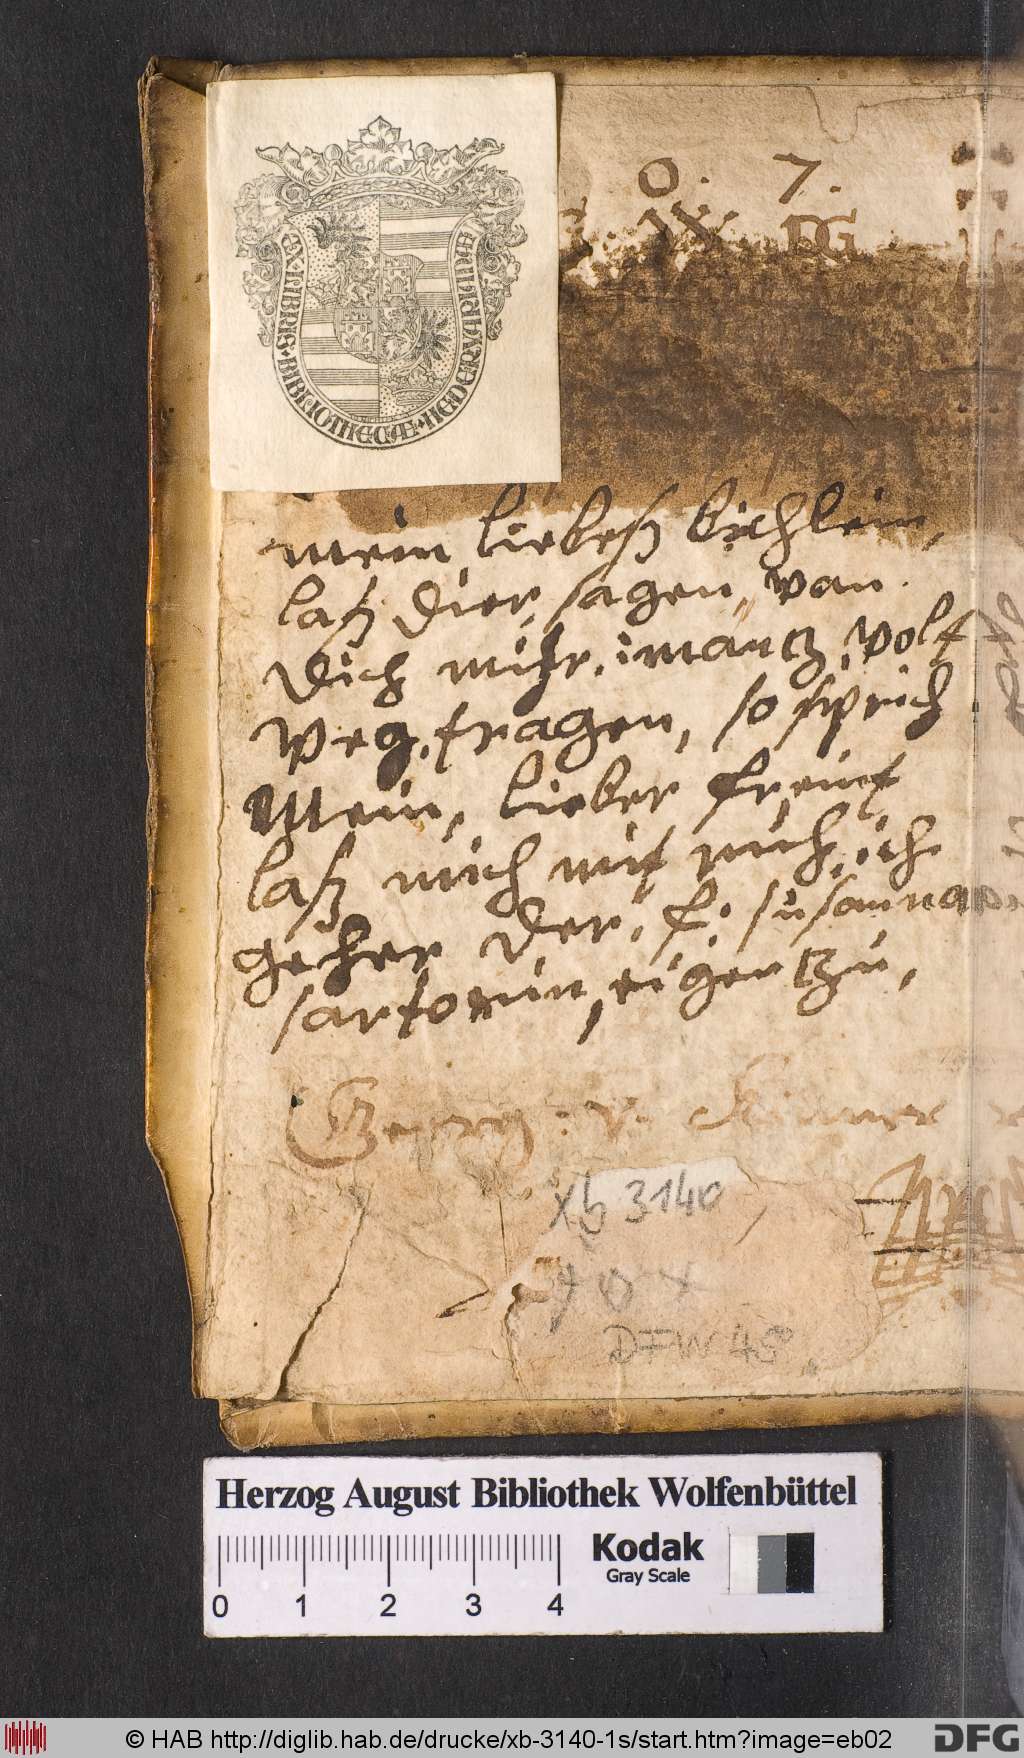 0. 7.
W DG
EX LIBRIS · BIBLIOTHECÆ · HEDERVARIANÆ
mein liebeß bichlein,
laß dier sagen, van
dich mihr imantz wolt
weg fragen, so sprich
Mein, lieber freint
laß mich mit ruh, ich
geher der f: susanna
sartorin, eigentzu,
Georg
Xb 3140
DFW 48
Herzog August Bibliothek Wolfenbüttel
Kodak
Gray Scale
0 1 2 3 4
© HAB http://diglib.hab.de/drucke/xb-3140-1s/start.htm?image=eb02
DFG